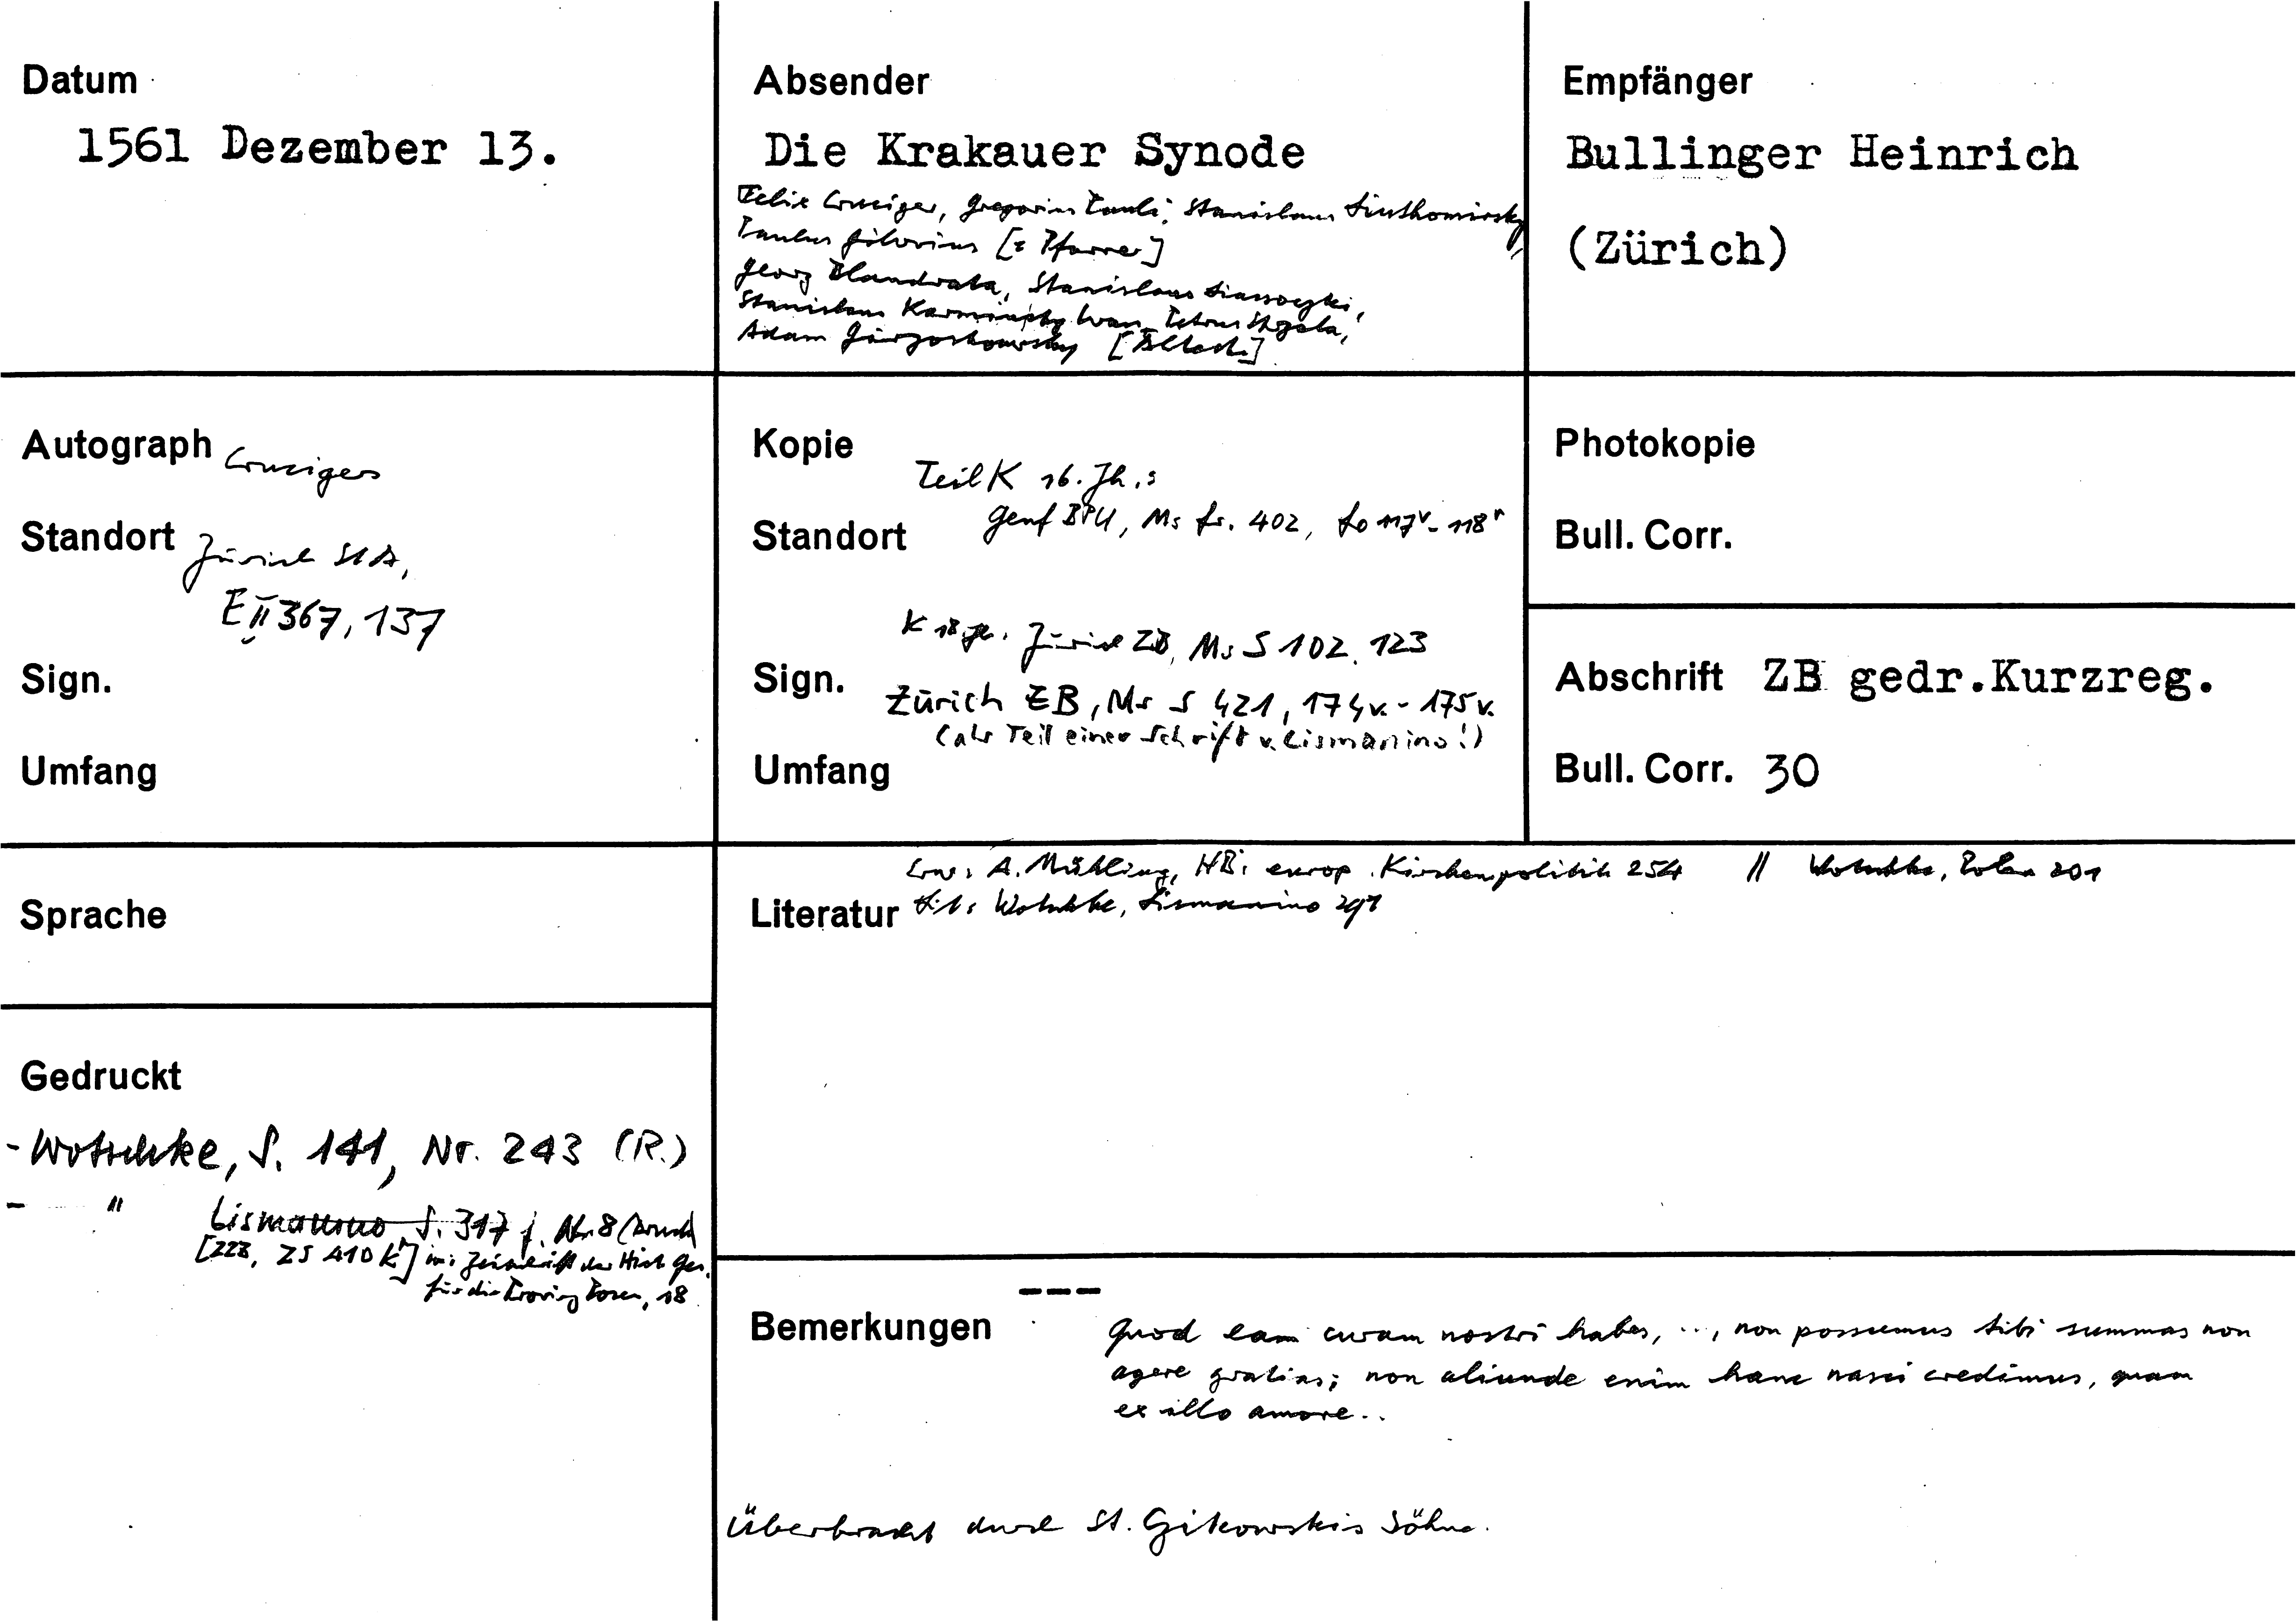 Datum
1561 Dezember 13.
Absender
Die Krakauer Synode
Felix Cruciger, Gregorius Pauli, Stanislaus
Paulus Gilovius [= Pfarrer]
Georg Blandrata, Stanislaus
Stanislaus Petrus
Adam
Empfänger
Bullinger Heinrich
(Zürich)
Autograph Crucigers
Standort Zürich StA,
E II 367, 137
Sign.
Umfang
Kopie
Teil K 16. Jh.:
Standort Genf BPU, Ms fr. 402, fo 117v-118r
K 18. Jh. Zürich ZB, Ms S 102, 123
Sign. Zürich ZB, Ms S 421, 174v.-175v.
(als Teil einer Schrift v. Lismanino!)
Umfang
Photokopie
Bull. Corr.
Abschrift ZB gedr.Kurzreg.
Bull. Corr. 30
Sprache
A. Mühling, HBs europ. Kirchenpolitik 254 // Wotschke, Polen 201
Literatur Wotschke, Lismanino 291
Gedruckt
- Wotschke, S. 141, Nr. 243 (R.)
- " Lismanino S. 317 f. Nr. 8 (Druck)
[ZZB, ZS 410 k] in: Zeitschrift der Hist. Ges.
für die Provinz Posen, 18
---
Bemerkungen
Quod eam curam nostri habes, .., non possumus tibi summas non
agere gratias; non aliunde enim hanc nasci credimus, quam
ex illo amore..
Überbracht durch St. Gikowskis Söhne.